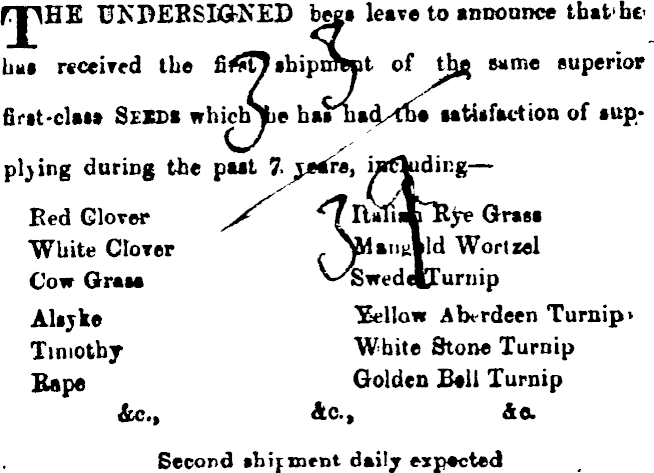 THE UNDERSIGNED begs leave to announce that he
has received the first shipment of the same superior
first-class SEEDS which he has had the satisfaction of sup-
plying during the past 7 years, including—
Red Clover
White Clover
Cow Grass
Alsyke
Timothy
Rape
Italian Rye Grass
Mangold Wortzel
Swede Turnip
Yellow Aberdeen Turnip
White Stone Turnip
Golden Bell Turnip
&c., &c., &c.
Second shipment daily expected
33
39